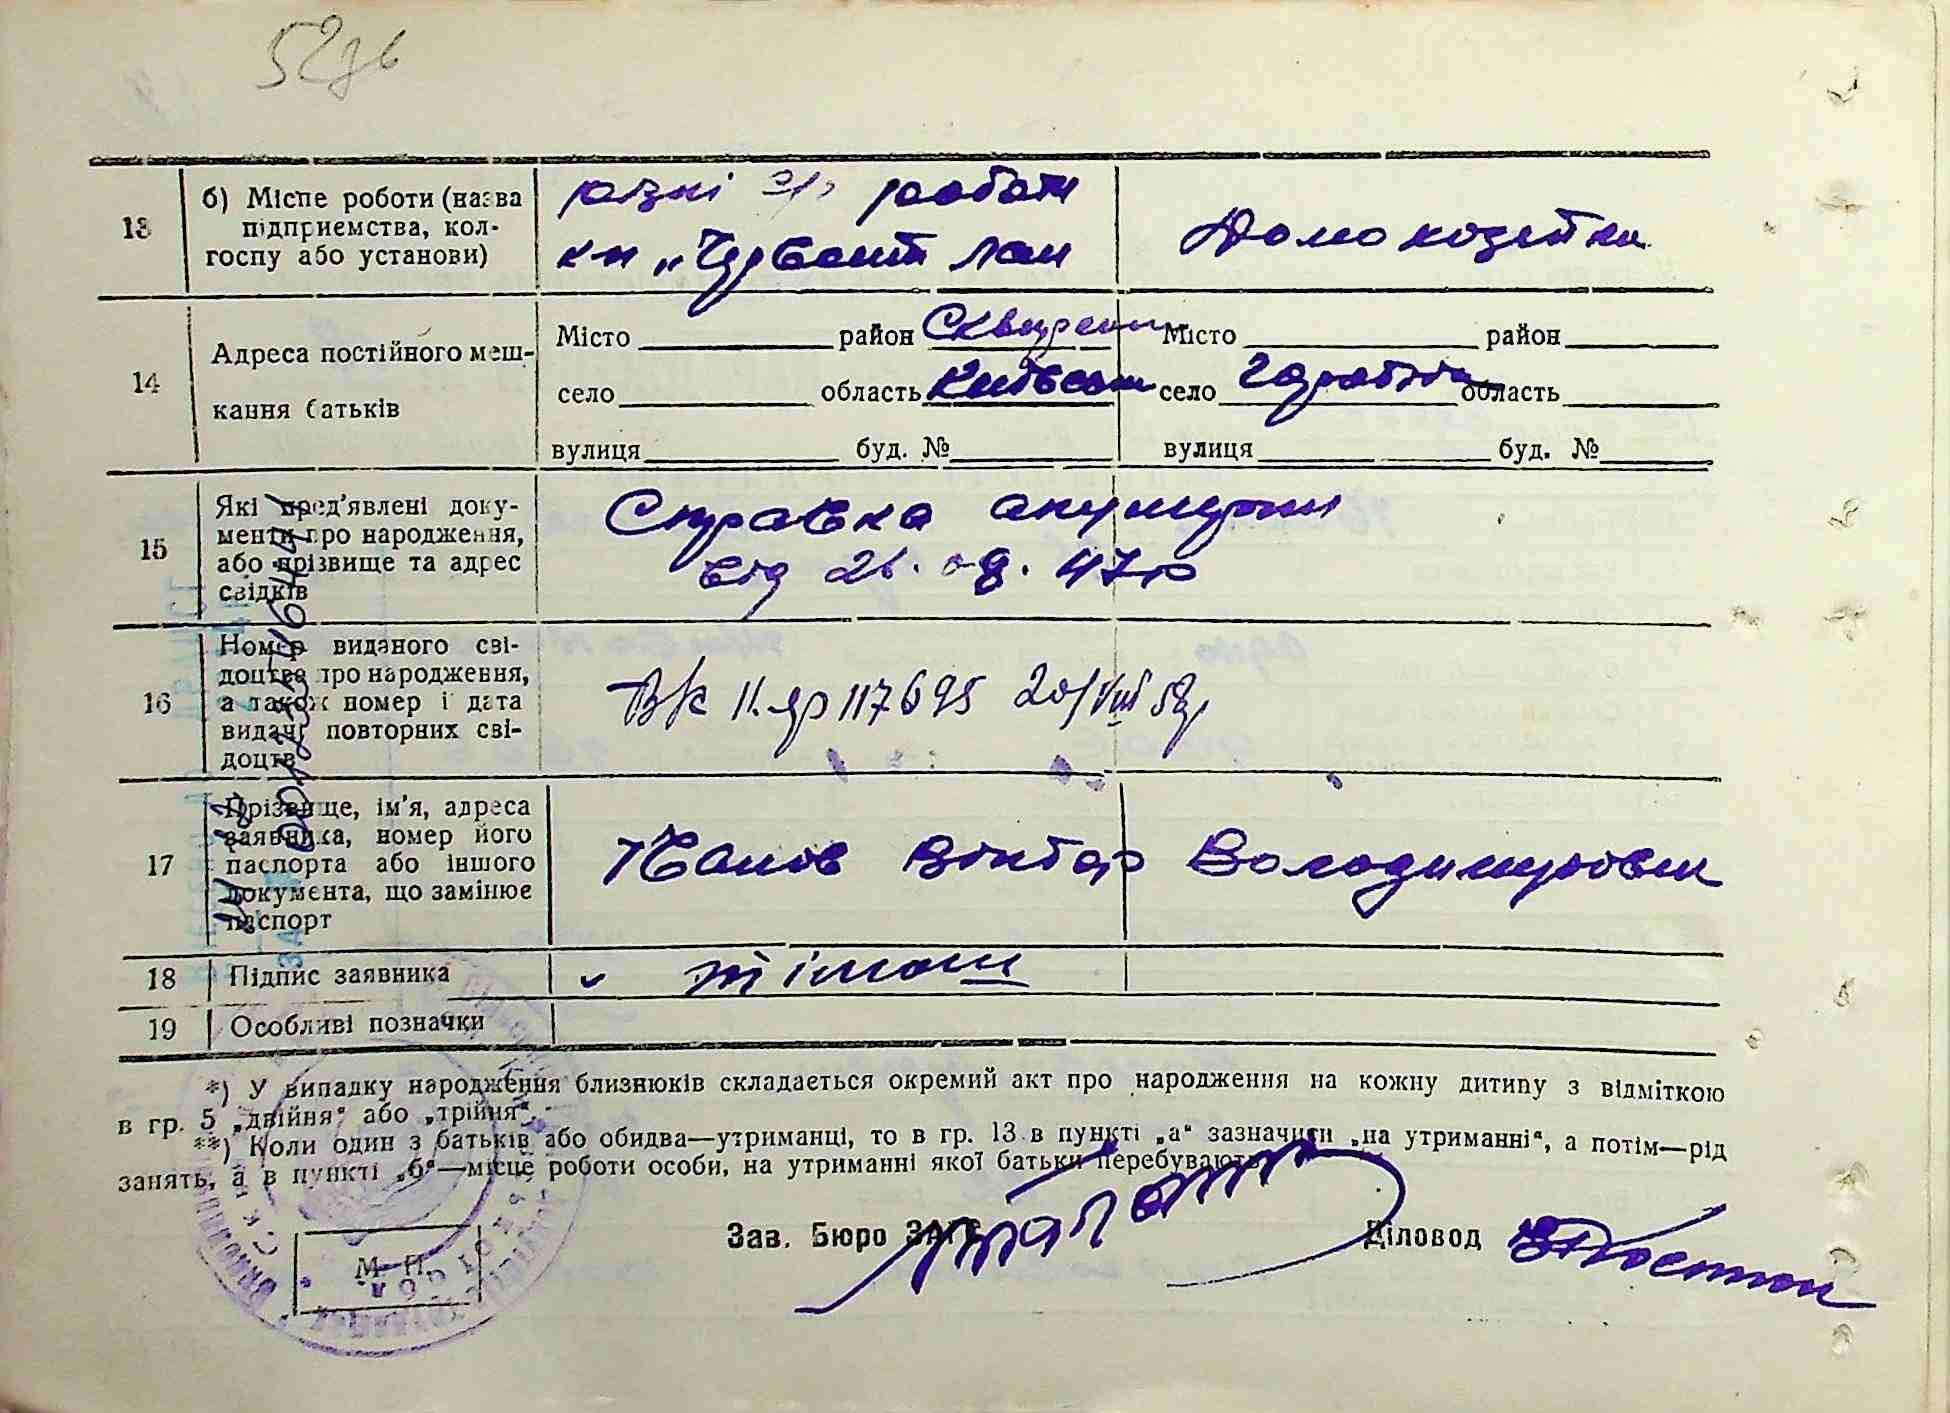 13
б) Місце роботи (назва
підприємства, кол-
госпу або установи)
різні роботи
"Червоний лан
Домохозяйка
14
Адреса постійного меш-
кання батьків
Місто район Сквирський
село область Київська
вулиця буд. №
Місто район
село область
вулиця буд. №
15
Які пред'явлені доку-
менти про народження,
або прізвище та адрес
свідків
Справка акушерки
від 26. 47р
16
Номер виданого сві-
доцтва про народження,
а також номер і дата
видачі повторних сві-
доцтв
117695 20/VIII
17
Прізвище, ім'я, адреса
заявника, номер його
паспорта або іншого
документа, що замінює
паспорт
Віктор Володимирович
18
Підпис заявника
19
Особливі позначки
*) У випадку народження близнюків складається окремий акт про народження на кожну дитину з відміткою
в гр. 5 „двійня“ або „трійня“.
**) Коли один з батьків або обидва—утриманці, то в гр. 13 в пункті „а“ зазначити „на утриманні“, а потім—рід
занять, а в пункті „б“—місце роботи особи, на утриманні якої батьки перебувають
Зав. Бюро ЗАГС
Діловод
М. П.